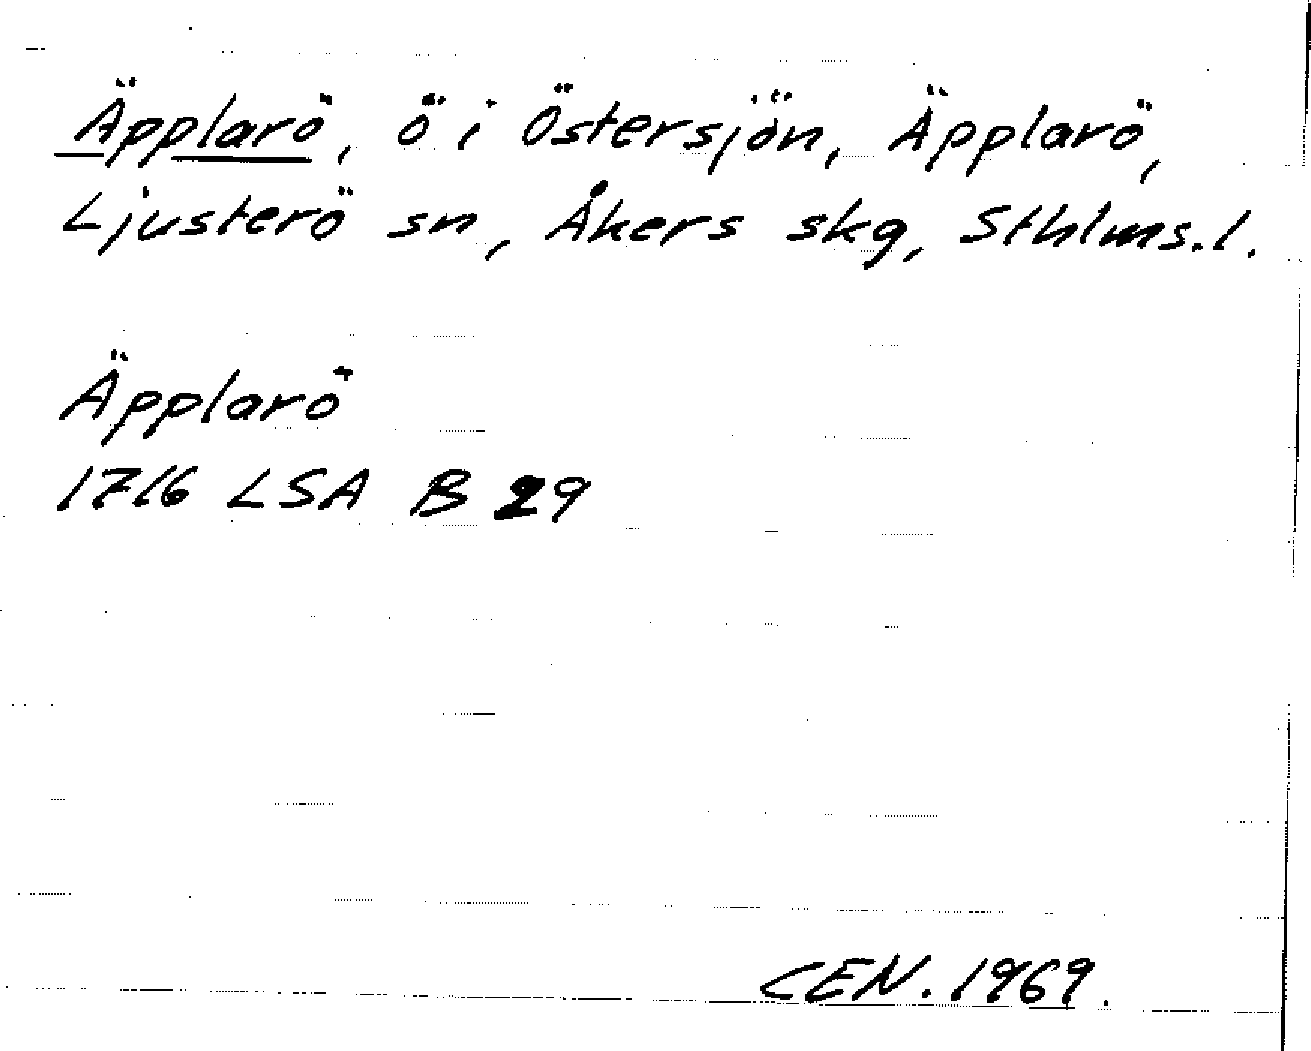 Äpplarö, ö i Östersjön, Äpplarö,
Ljusterö sn, Åkers skg, Sthlms.l.
Äpplarö
1716 LSA B 29
CEN. 1969.